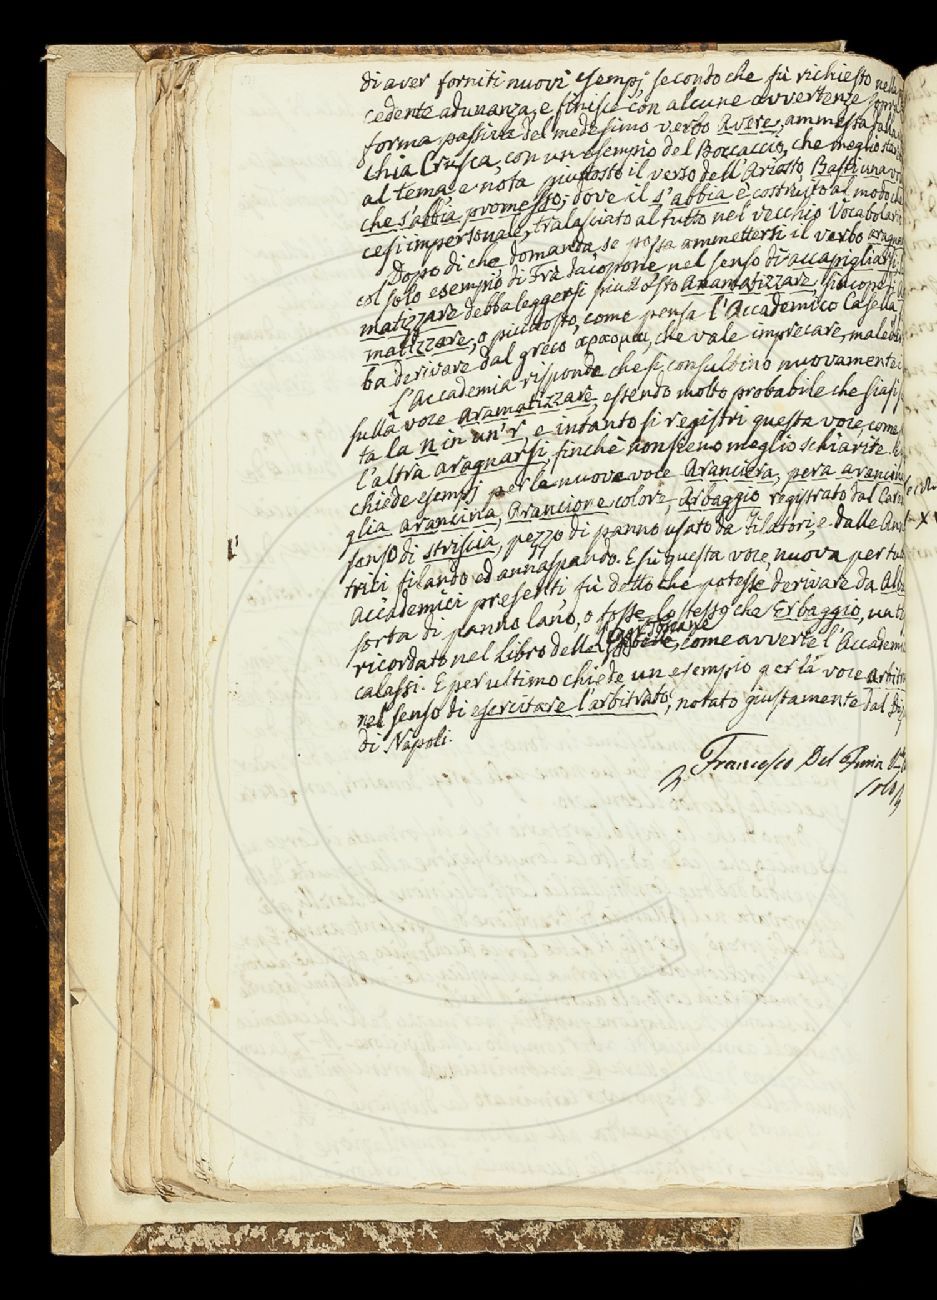 di aver forniti nuovi esempj secondo che fù richiesto nella
cedente adunanza, e finisce con alcune avvertenze sopra
forma passiva del medesimo verbo Avere, ammessa dalla
chia Crusca, con un esempio del Boccaccio, che meglio
al tema, e nota piuttosto il verso dell'Ariosto, Basti una
che s'abbia promesso, dove il s'abbia è costruito al modo che
cesi impersonale, tralasciato al tutto nel vecchio Vocabolario
Dopo di che domanda, se possa ammettersi il verbo
col solo esempio di Fra Jacopone nel senso di accapigliarsi
matizzare debba leggersi piuttosto Anamatizzare, sincope di
matizzare, o piuttosto, come pensa l'Accademico Casella
ba derivare dal greco che vale imprecare,
L'Accademia risponde che si consultino nuovamente
sulla voce Aramatizzare, essendo molto probabile che siasi
ta la n in un'r, e intanto si registri questa voce, come
l'altra aragnarsi, finchè non sieno meglio schiarite.
chiede esempj per le nuove voce Aranciera, pera
glia arancina, Arancione colore, Arbaggio registrato dal
senso di striscia, pezzo di panno usato da filatori, e dalle
trici filando ed annaspando. E sù questa voce, nuova per
Accademici presenti fù detto che potesse derivare da
sorta di panno lano, o fosse lo stesso che Erbaggio,
ricordato nel Libro delle come avverte l'Accademico
calassi. E per ultimo chiede un esempio per la voce
nel senso di esercitare l'arbitrato, notato giustamente dal
di Napoli.
Francesco Del Furia